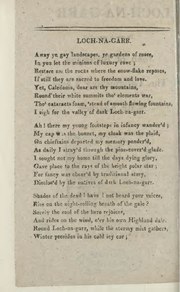 LOCH-NA-GARR.
Away ye gay landscapes, ye gardens of roses,
In you let the minions of luxury rove;
Restore me the rocks where the snow-flake reposes,
If still they are sacred to freedom and love.
Yet, Caledonia, dear are thy mountains,
Round their white summits tho' elements war,
Tho' cataracts foam, 'stead of smooth flowing fountains,
I sigh for the valley of dark Loch-na-garr.
Ah! there my young footsteps in infancy wander'd;
My cap was the bonnet, my cloak was the plaid,
On chieftains departed my memory ponder'd,
As daily I stray'd through the pine-cover'd glade.
I sought not my home till the days dying glory,
Gave place to the rays of the bright polar star;
For fancy was cheer'd by traditional story,
Disclos'd by the natives of dark Loch-na-garr.
Shades of the dead! have I not heard your voices,
Rise on the night-rolling breath of the gale?
Surely the soul of the hero rejoices,
And rides on the wind, o'er his own Highland dale.
Round Loch-na-garr, while the stormy mist gathers,
Winter presides in his cold icy car;